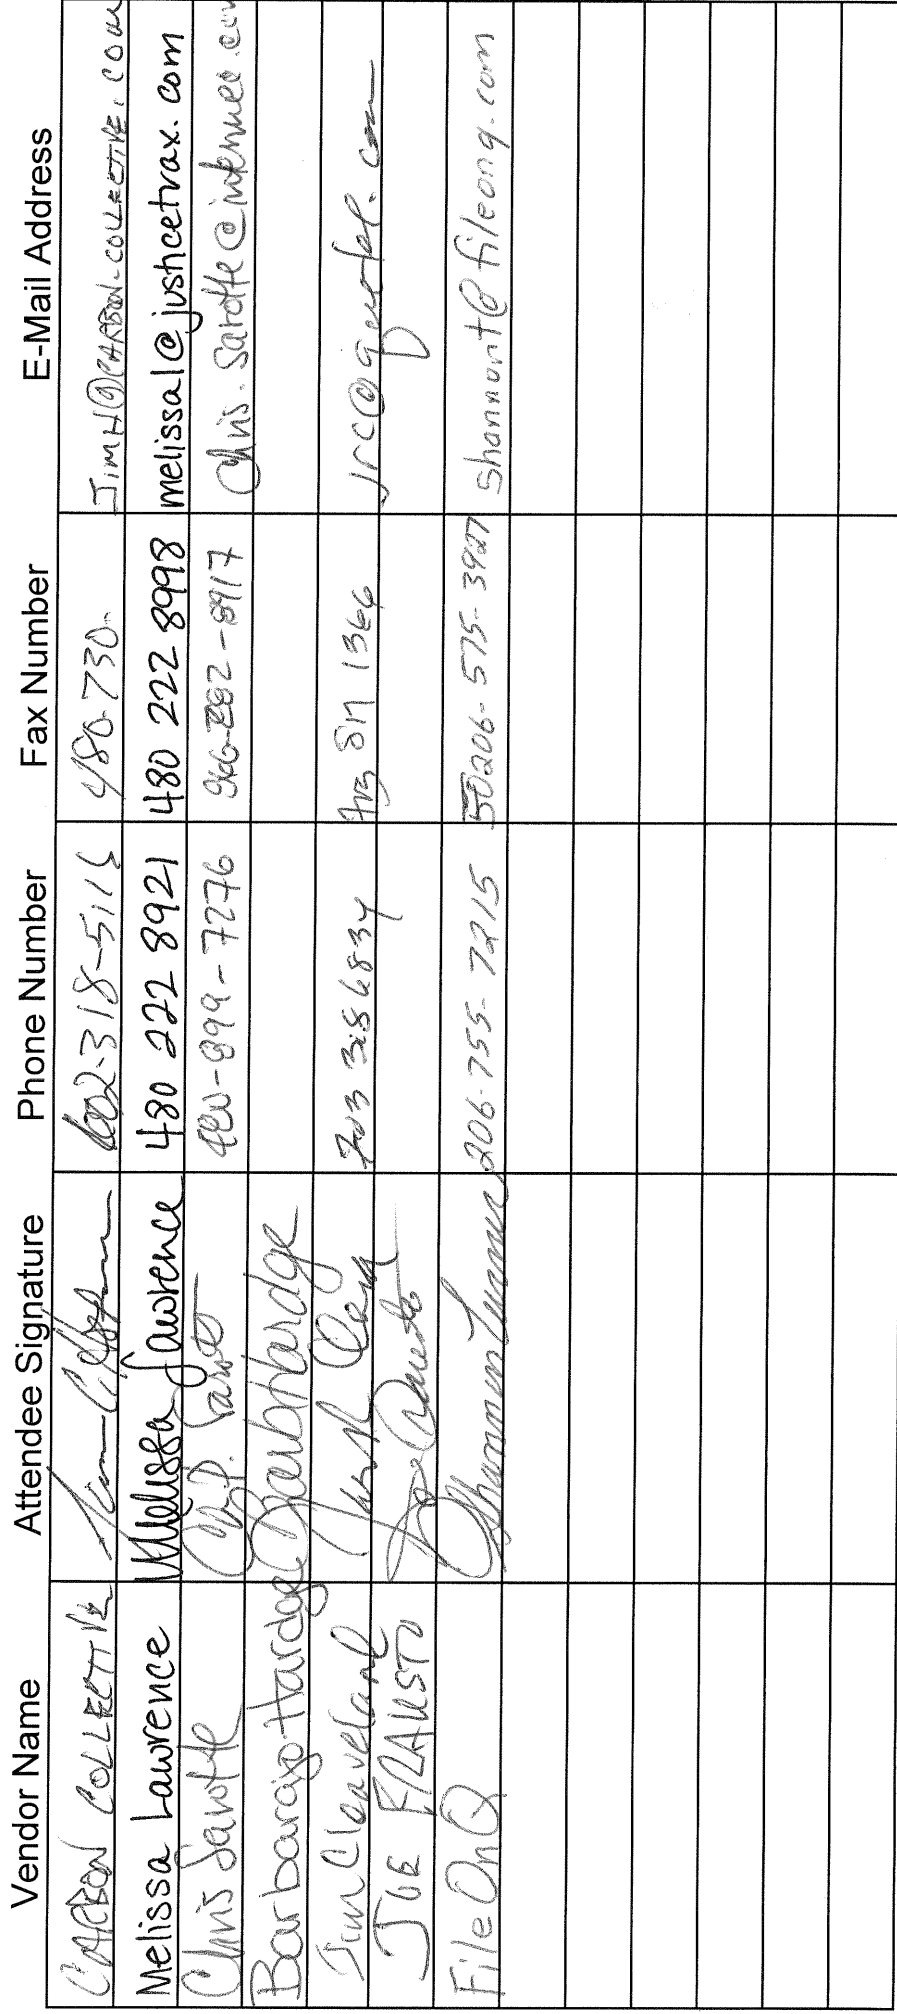 Vendor Name Attendee Signature Phone Number Fax Number E-Mail Address
CARBON COLLECTIVE 602-318-511 480-730- JIMH@CARBON-COLLECTIVE.COM
Melissa Lawrence Melissa Lawrence 480 222 8921 480 222 8998 melissal@justicetrax.com
Chris Sarotte 480-899-7276 866-282-8917 Chris.Sarotte@
Barbarajo Hardge Hardge
Jim Cleveland 703 356 6834 1366 jrc@
JOE FRAUSTO Joe Frausto
FileOnQ Shannon Turner 206-755-7215 206-575-3927 shannont@fileonq.com